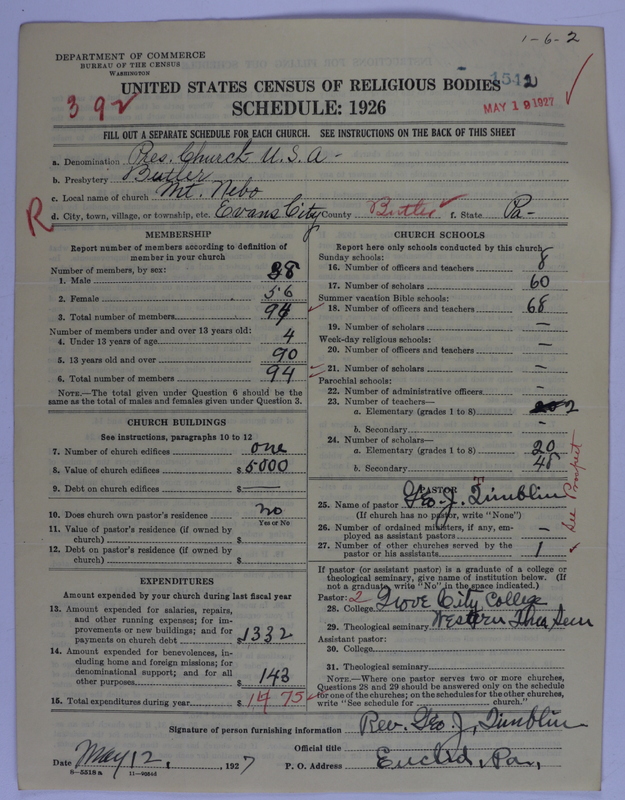 1-6-2
DEPARTMENT OF COMMERCE
BUREAU OF THE CENSUS
WASHINGTON
1542
UNITED STATES CENSUS OF RELIGIOUS BODIES
392
SCHEDULE: 1926
MAY 19 1927
FILL OUT A SEPARATE SCHEDULE FOR EACH CHURCH. SEE INSTRUCTIONS ON THE BACK OF THIS SHEET
a. Denomination Pres. Church U.S.A-
b. Presbytery Butler
c. Local name of church Mt. Nebo
R
d. City, town, village, or township, etc. Evans City County Butler f. State Pa-
MEMBERSHIP
Report number of members according to definition of
member in your church
Number of members, by sex:
1. Male 38
2. Female 56
3. Total number of members 94
Number of members under and over 13 years old:
4. Under 13 years of age 4
5. 13 years old and over 90
6. Total number of members 94
NOTE.—The total given under Question 6 should be
same as the total of males and females given under Question 3.
CHURCH BUILDINGS
See instructions, paragraphs 10 to 12
7. Number of church edifices one
8. Value of church edifices $5000
9. Debt on church edifices $ —
10. Does church own pastor's residence? no
Yes or No
11. Value of pastor's residence (if owned by
church) $
12. Debt on pastor's residence (if owned by
church) $
EXPENDITURES
Amount expended by your church during last fiscal year
13. Amount expended for salaries, repairs,
and other running expenses; for im-
provements or new buildings; and for
payments on church debt $1332
14. Amount expended for benevolences, in-
cluding home and foreign missions; for
denominational support; and for all
other purposes 143
15. Total expenditures during year $1475
CHURCH SCHOOLS
Report here only schools conducted by this church
Sunday schools:
16. Number of officers and teachers 8
17. Number of scholars 60
Summer vacation Bible schools:
18. Number of officers and teachers 68
19. Number of scholars —
Week-day religious schools:
20. Number of officers and teachers —
21. Number of scholars —
Parochial schools:
22. Number of administrative officers -
23. Number of teachers—
a. Elementary (grades 1 to 8) 2
b. Secondary -
24. Number of scholars—
a. Elementary (grades 1 to 8) 20
b. Secondary 48
PASTOR
25. Name of pastor Geo. J. Timblin
(If church has no pastor, write "None")
26. Number of ordained ministers, if any, em-
ployed as assistant pastors -
27. Number of other churches served by the
pastor or his assistants 1
See Prospect
If pastor (or assistant pastor) is a graduate of a college or
theological seminary, give name of institution below. (If
not a graduate, write "No" in the space indicated.)
Pastor: 2
28. College Grove City College
29. Theological seminary Western Theo, Sem
Assistant pastor:
30. College
31. Theological seminary
NOTE.—Where one pastor serves two or more churches,
Questions 28 and 29 should be answered only on the schedule
for one of the churches; on the schedules for the other churches,
write "See schedule for church."
Signature of person furnishing information Rev. Geo J, Timblin
Official title
Date May 12, 1927 P. O. Address Euclid, Pa,
8-5518 a